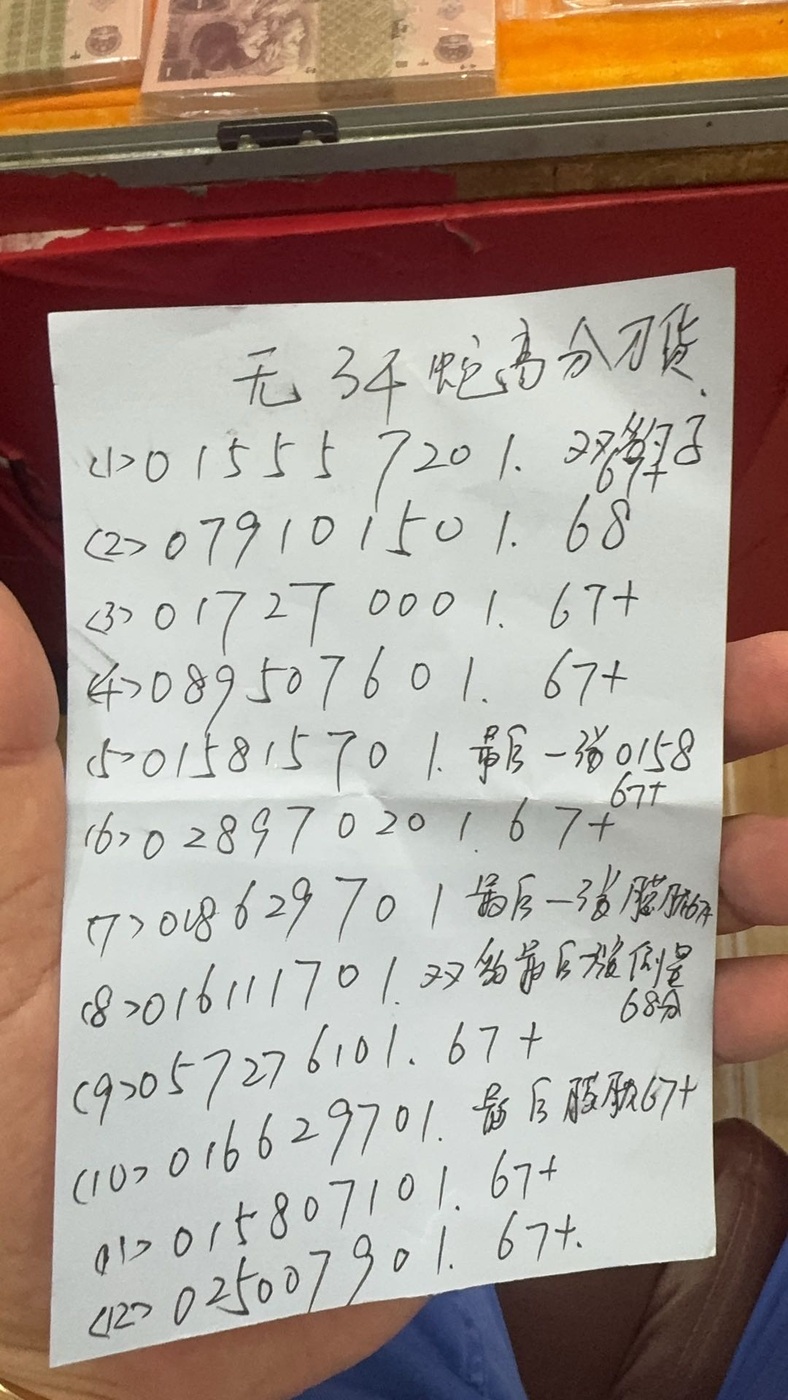 无34 蛇高分刀货.
(1)015557201. 双豹子
67+
(2)079101501. 68
(3)017270001. 67+
(4)089507601. 67+
(5)015815701. 最后一张0158
67+
(6)028970201. 67+
(7)018629701 最后一张
(8)016111701. 双豹最后一张倒置
68分
(9)057276101. 67+
(10)016629701. 最后 67+
(11)015807101. 67+
(12)025007901. 67+.